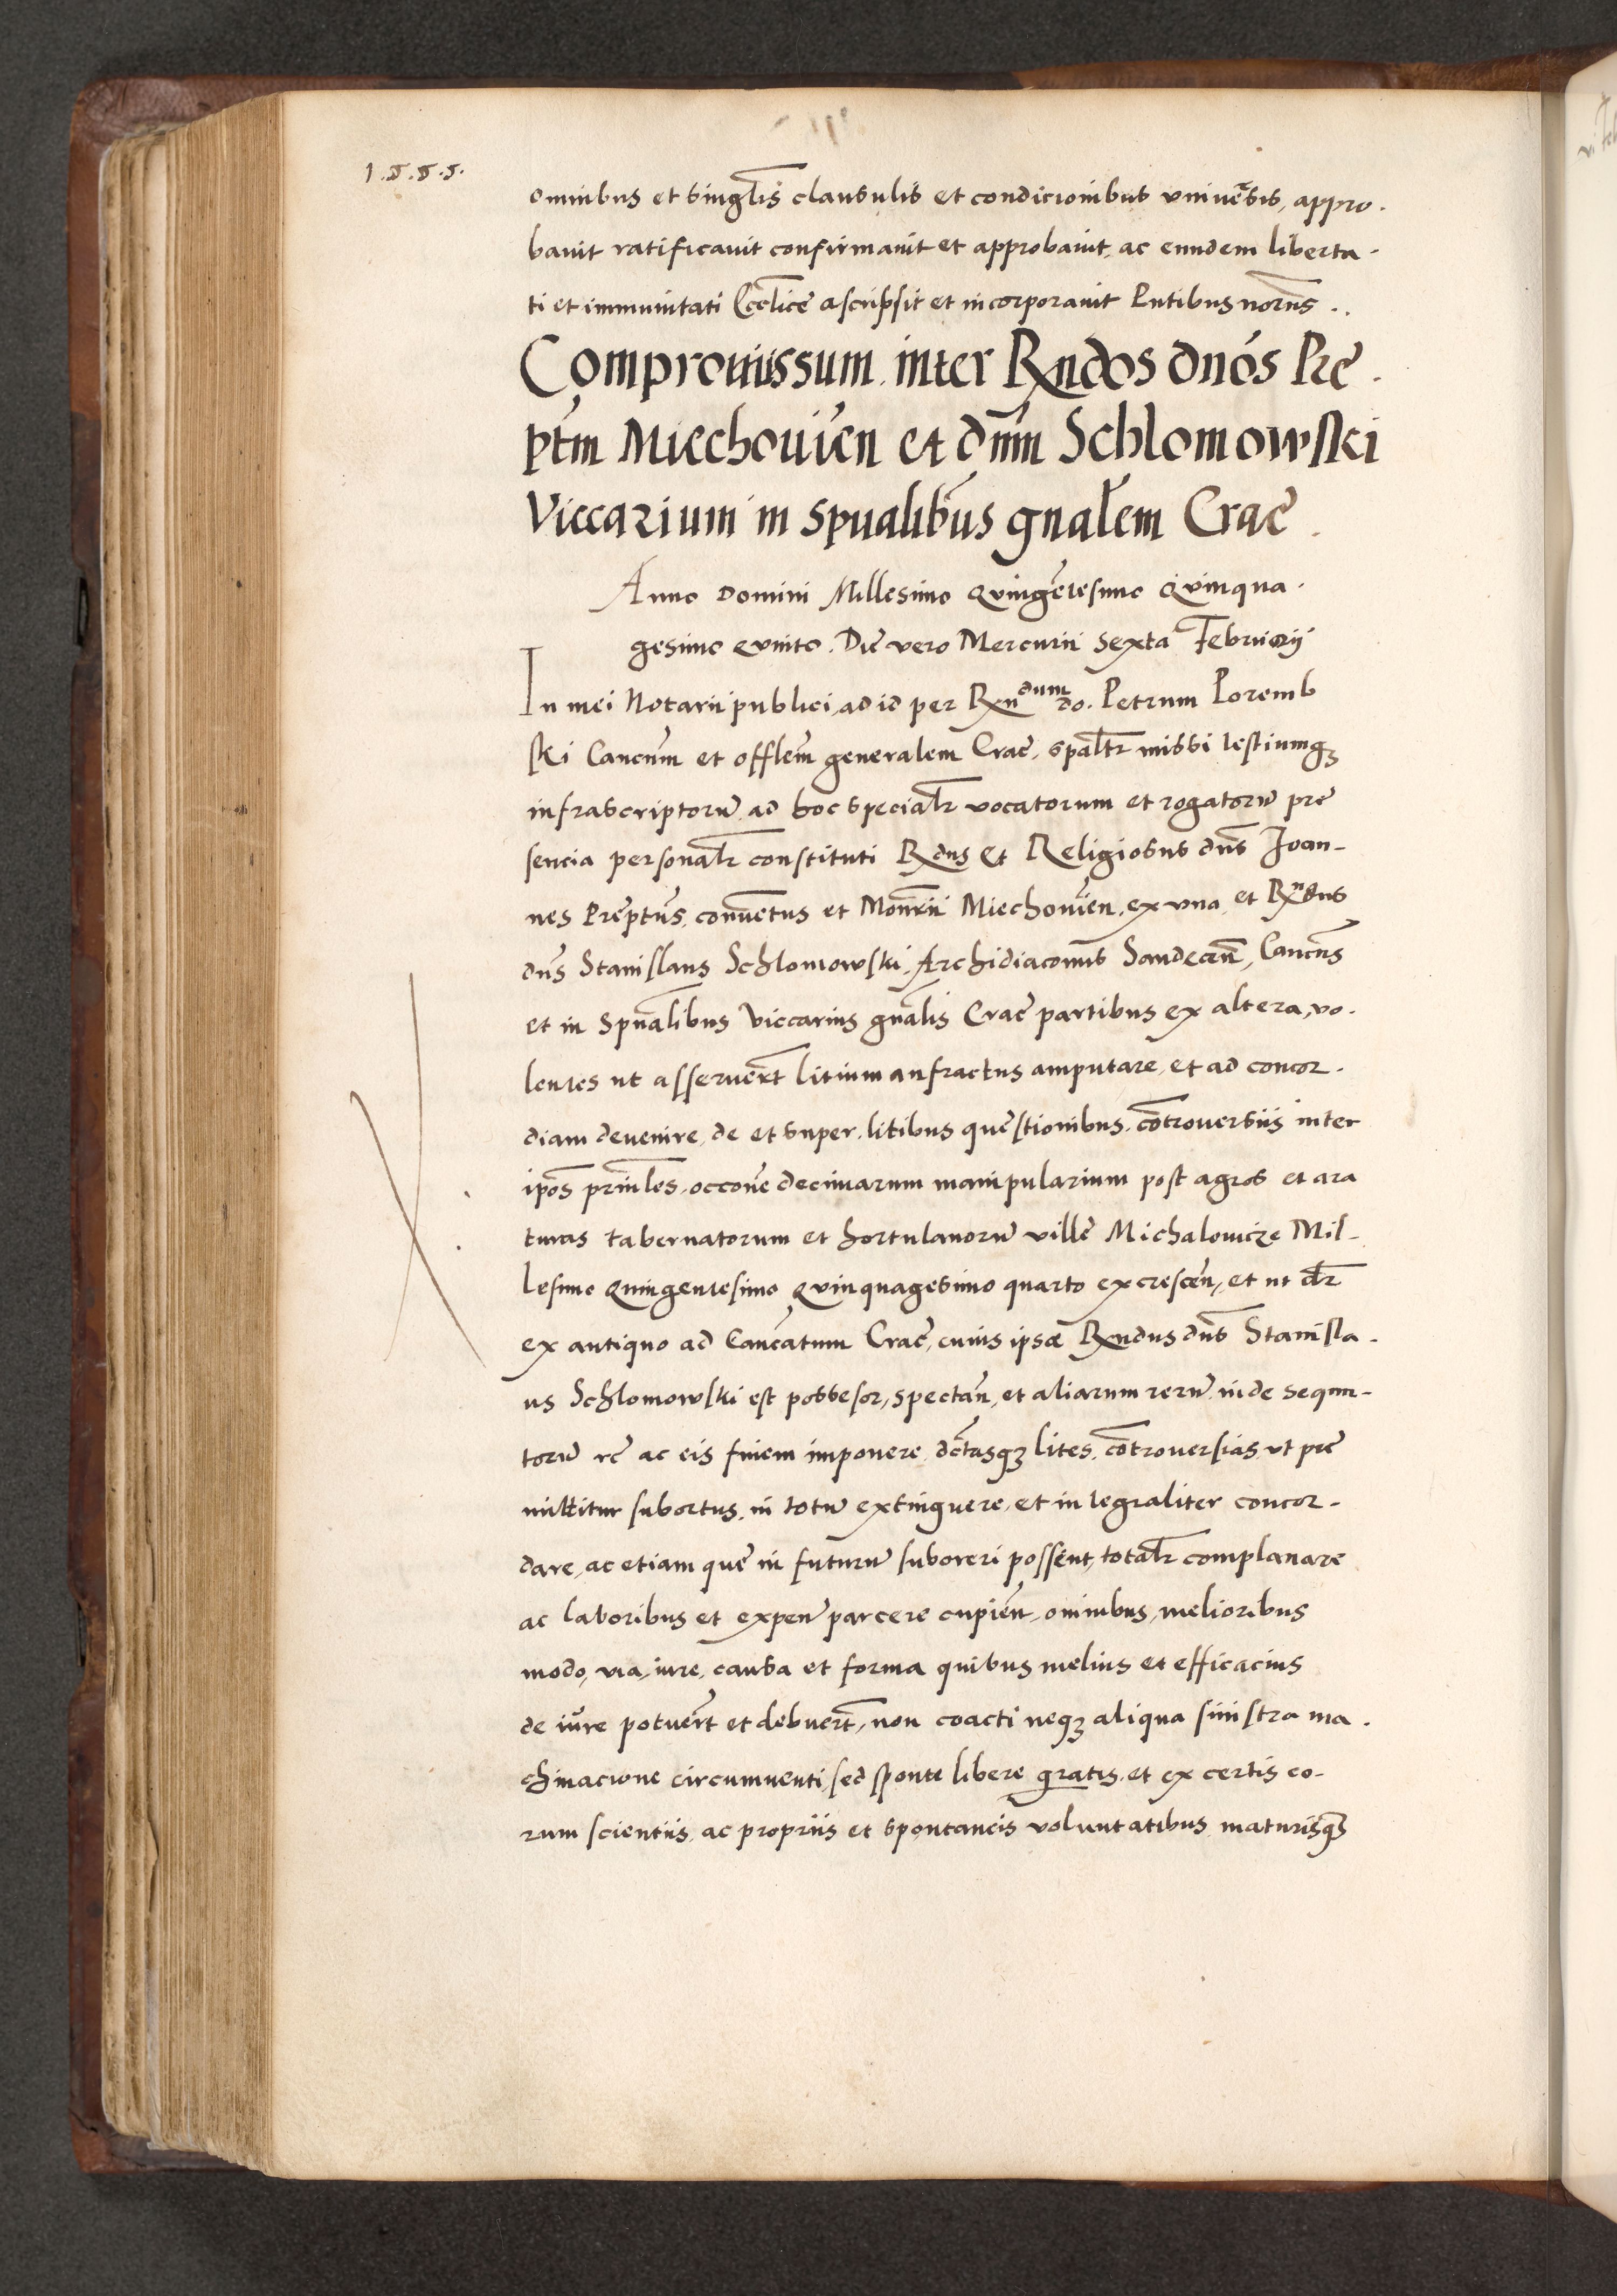 1.5.5.5.
omnibus et singlis clausulis et condicionibus vniuersis, appro.
bauit ratificauit confirmauit et approbauit, ac eundem liberta.
ti et immunitati Ecclice ascripsit et incorporauit Pntibus norius..
Compromissum inter Rxndos dnos Pre.
ptm Miechouien et dnm Schlomowski
Viccarium in spualibus gnalem Crac.
Anno Domini Millesimo Quingetesimo Quinqua.
gesimo Quinto. Die vero Mercurii sexta Februarij
In mei Notarii publici, ad id per Rxndum do. Petrum Poremb
ski Cancum et offlem generalem Crac, spaltr missi testiumq3
infrascriptoru ad hoc specialr vocatorum et rogatoru pre
sencia personalr constituti Rdus et Religiosus dns Joan-
nes Preptus, conuentus et Monrii Miechouien, ex vna, et Rxndus
dns Stanislaus Schlomowski, Archidiaconus Sandecen, Cancus
et in Spualibus Viccarius gnalis Crac partibus ex altera, vo.
lentes ut asseruert litium anfractus amputare, et ad concor.
diam deuenire, de et super litibus questionibus, cotrouersiis inter
ipos prinles, occone decimarum manipularium post agros et ara
turas tabernatorum et hortulanoru ville Michalouicze Mil-
lesimo Quingentesimo Quinquagesimo quarto excrescen, et ut dr
ex antiquo ad Cancatum Crac, cuius ipse Rxndus dns Stanisla.
us Schlomowski est possesor, spectan, et aliarum reru inde sequu-
toru rc ac eis finem imponere dctasq3 lites, cotrouersias ut pre
mittitur subortus, in totu extinguere, et integraliter concor-
dare, ac etiam que in futuru suboreri possent, totalr complanare
ac laboribus et expen parcere cupien, omnibus, melioribus
modo, via, iure, causa et forma quibus melius et efficacius
de iure potuert et debuert, non coacti neq3 aliqua sinistra ma.
chinacione circumuenti, sed sponte libere gratis, et ex certis eo-
rum scientiis, ac propriis et spontaneis voluntatibus maturisq3